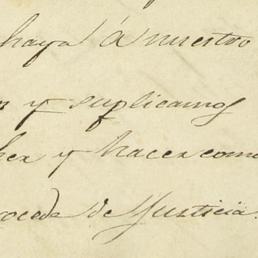 haya á nuestro
y suplicamos
y hacer como
de Justicia.